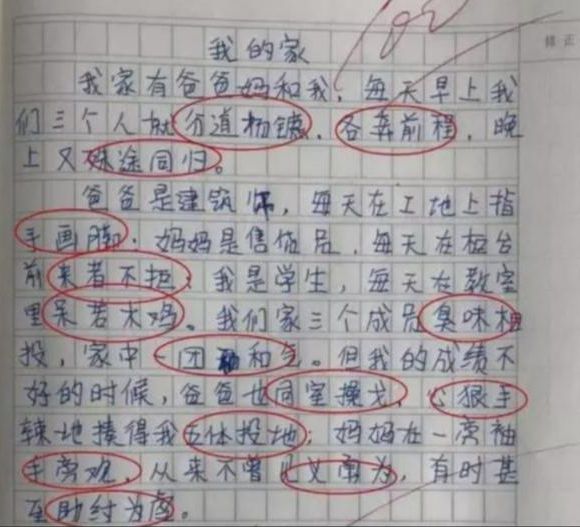 我的家
我家有爸爸妈和我，每天早上我
们三个人就分道扬镳，各奔前程，晚
上又殊途同归。
爸爸是建筑师，每天在工地上指
手画脚；妈妈是售货员，每天在柜台
前来者不拒；我是学生，每天在教室
里呆若木鸡。我们家三个成员臭味相
投，家中一团和气。但我的成绩不
好的时候，爸爸也同室操戈，心狠手
辣地揍得我五体投地；妈妈在一旁袖
手旁观，从来不曾见义勇为，有时甚
至助纣为虐。